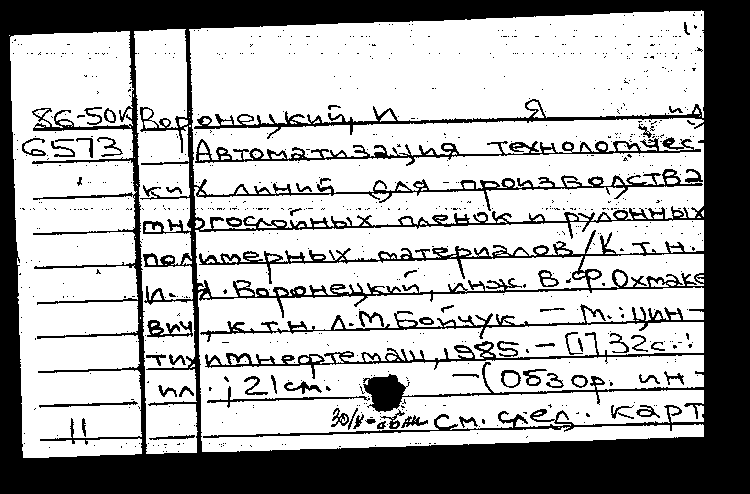 1.
86-50К Воронецкий, И Я и др
6573 Автоматизация технологичес-
ких линий для производства
многослойных пленок и рулонных
полимерных материалов / К.т.н.
И. Я. Воронецкий, инж. В.Ф. Охмаке
вич, к.т.н. Л.М. Бойчук. — М.: Цин-
тихимнефтемаш, 1985. — [1], 32 с.:
ил.; 21 см. — (Обзор. ин-
11 см. след. карт.